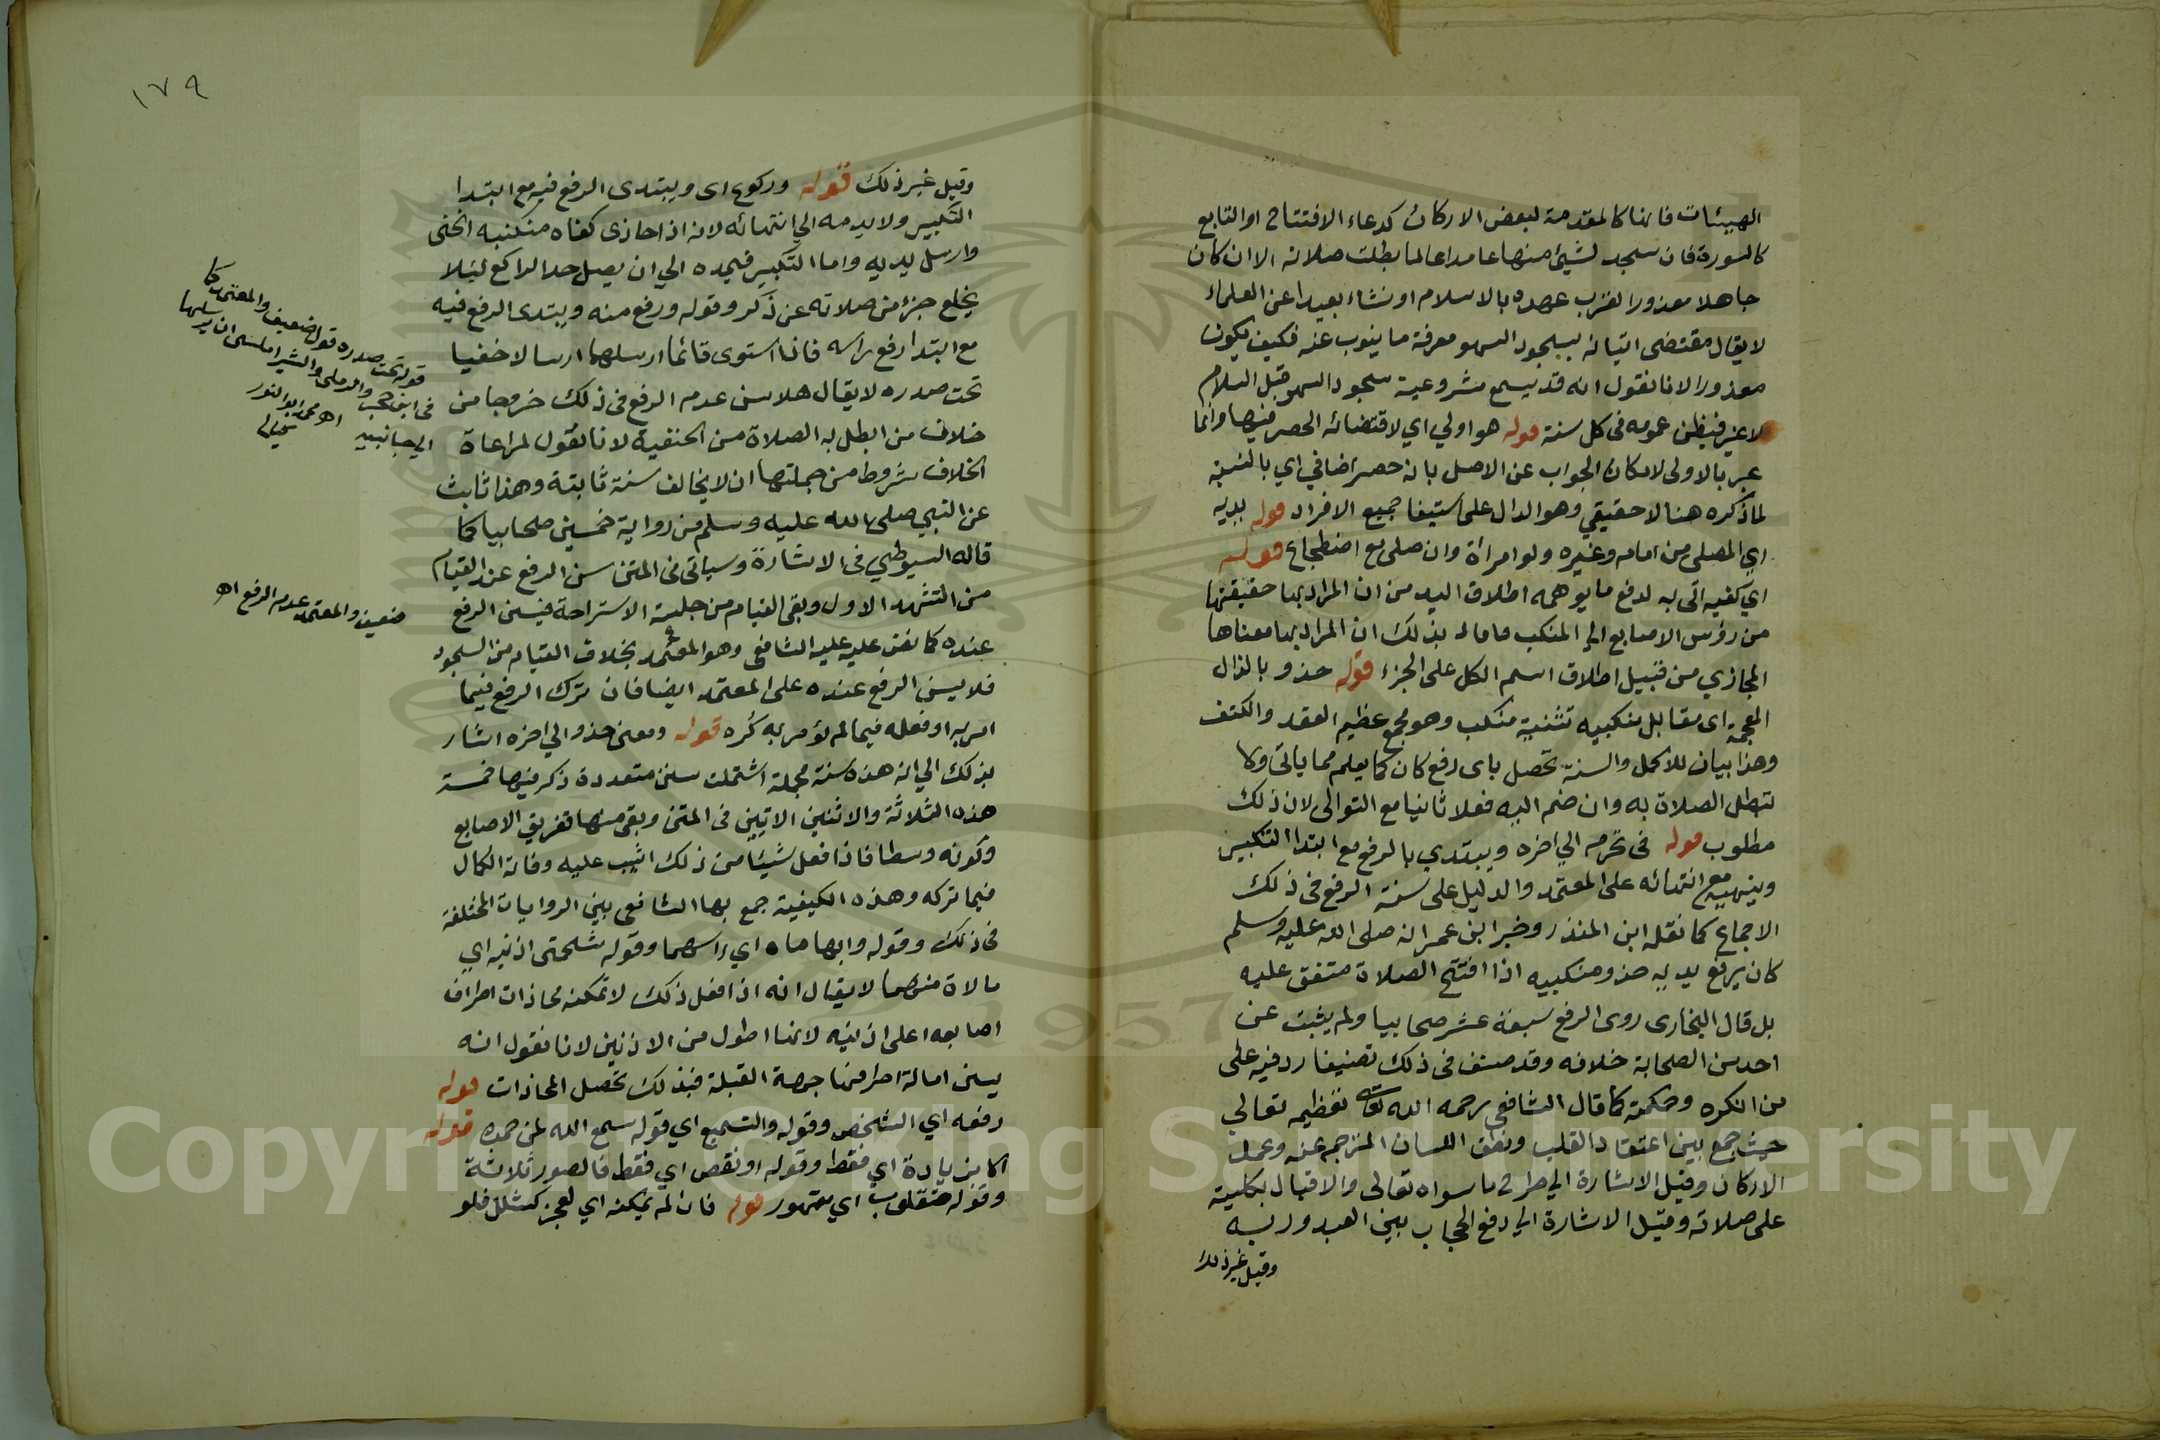 الهيئات فانها كالمقدمة لبعض الاركان كدعاء الافتتاح او التابع
كالسورة فان سجد لشيئ منها عامدا عالما بطلت صلاته الا ان كان
جاهلا معذورا لقرب عهده بالاسلام او نشاء بعيدا عن العلماء
لا يقال مقتضى اتيانه بسجود السهو معرفة ما ينوب عنه فكيف يكون
معذورا لانا نقول انه قد يسمع مشروعية سجود السهو قبل السلام
لا غير فيظن عمومه في كل سنة قوله هو اولي اي لاقتضائه الحصر فيها وانما
عبر بالاولى لامكان الجواب عن الاصل بانه حصر اضافي اي بالنسبة
لما ذكره هنا لا حقيقي وهو الدال على استيفا جميع الافراد قوله يديه
اي المصلي من امام وغيره ولو امراة وان صلى مع اضطجاع قوله
اي كفيه اتى به لدفع ما يوهمه اطلاق اليد من ان المراد بها حقيقتها
من رؤس الاصابع الى المنكب فافاد بذلك ان المراد بها معناها
المجازي من قبيل اطلاق اسم الكل على الجزء قوله حذو بالذال
المعجمة اى مقابل منكبيه تثنية منكب وهو مجمع عظيم العضد والكتف
وهذا بيان للاكمل والسنة تحصل باى رفع كان كما يعلم مما ياتى ولا
تبطل الصلاة به وان ضم اليه فعلا ثانيا مع التوالى لان ذلك
مطلوب قوله في تحرم الي اخره ويبتدي بالرفع مع ابتدا التكبير
وينهيه مع انتهائه على المعتمد والدليل على سنة الرفع في ذلك
الاجماع كما نقله ابن المنذر وخبر ابن عمر انه صلى الله عليه وسلم
كان يرفع يديه حذو منكبيه اذا افتتح الصلاة متفق عليه
بل قال البخارى روى الرفع سبعة عشر صحابيا ولم يثبت عن
احد من الصحابة خلافه وقد صنف في ذلك تصنيفا رد فيه على
من انكره وحكمته كما قال الشافعي رحمه الله تعالى تعظيم تعالى
حيث جمع بين اعتقاد القلب ونطق اللسان المترجم عنه وعمل
الاركان وقيل الاشارة الي طرح ما سواه تعالى والاقبال بكليته
على صلاته وقيل الاشارة الي رفع الحجاب بين العبد وربه
وقيل غير ذلك
١٧٩
وقيل غير ذلك قوله وركوع اى ويبتدى الرفع فيه مع ابتدا
التكبير ولا يديمه الي انتهائه لانه اذا حاذى كفاه منكبيه انحنى
وارسل يديه واما التكبير فيمده الي ان يصل حد الراكع ليلا
يخلع جزء من صلاته عن ذكر وقوله ورفع منه ويبتدى الرفع فيه
مع ابتدا رفع راسه فاذا استوى قائما ارسلهما ارسالا خفيفا
تحت صدره لا يقال هلا سن عدم الرفع في ذلك خروجا من
خلاف من ابطل به الصلاة من الحنفية لانا نقول لمراعاة
الخلاف شروط من جملتها ان لا يخالف سنة ثابتة وهذا ثابت
عن النبي صلى الله عليه وسلم من رواية خمسين صحابيا كما
قاله السيوطي في الاشارة وسياتى في المتن سن الرفع عند القيام
من التشهد الاول وبقى القيام من جلسة الاستراحة فيسن الرفع
عنده كما نص عليه الشافعي وهو المعتمد بخلاف القيام من السجود
فلا يسن الرفع عنده على المعتمد ايضا فان ترك الرفع فيما
امر به او فعله فيما لم يؤمر به كره قوله ومعنى حذو الي اخره اشار
بذلك الي ان هذه سنة مجملة اشتملت سنن متعددة ذكر فيها خمسة
هذه الثلاثة والاثنين الاتيين في المتن وبقى منها تفريق الاصابع
وكونه وسطا فاذا فعل شيئا من ذلك اثيب عليه وفاته الكمال
فيما تركه وهذه الكيفية جمع بها الشافعى بين الروايات المختلفة
في ذلك وقوله وابهاماه اي راسهما وقوله شحمتى اذنيه اي
مالان منهما لا يقال انه اذا فعل ذلك لا تمكنه محاذات اطراف
اصابعه اعلى اذنيه لانها اطول من الاذنين لانا نقول انه
يسن امالة اطرافها جهة القبلة فبذلك تحصل المحاذات قوله
رفعه اي الشخص وقوله والتسميع اي قوله سمع الله لمن حمده قوله
الا بزيادة اي فقط وقوله او نقص اي فقط فالصور ثلاثة
وقوله فمقلوب اي مقهور قوله فان لم يمكنه اي لعجز كشلل فلو
قوله تحت صدره قول ضعيف والمعتمد كما
في ابن حجر والرملى والشبراملسى ان يرسلهما
الي جانبيه اه
ضعيف والمعتمد عدم الرفع اه